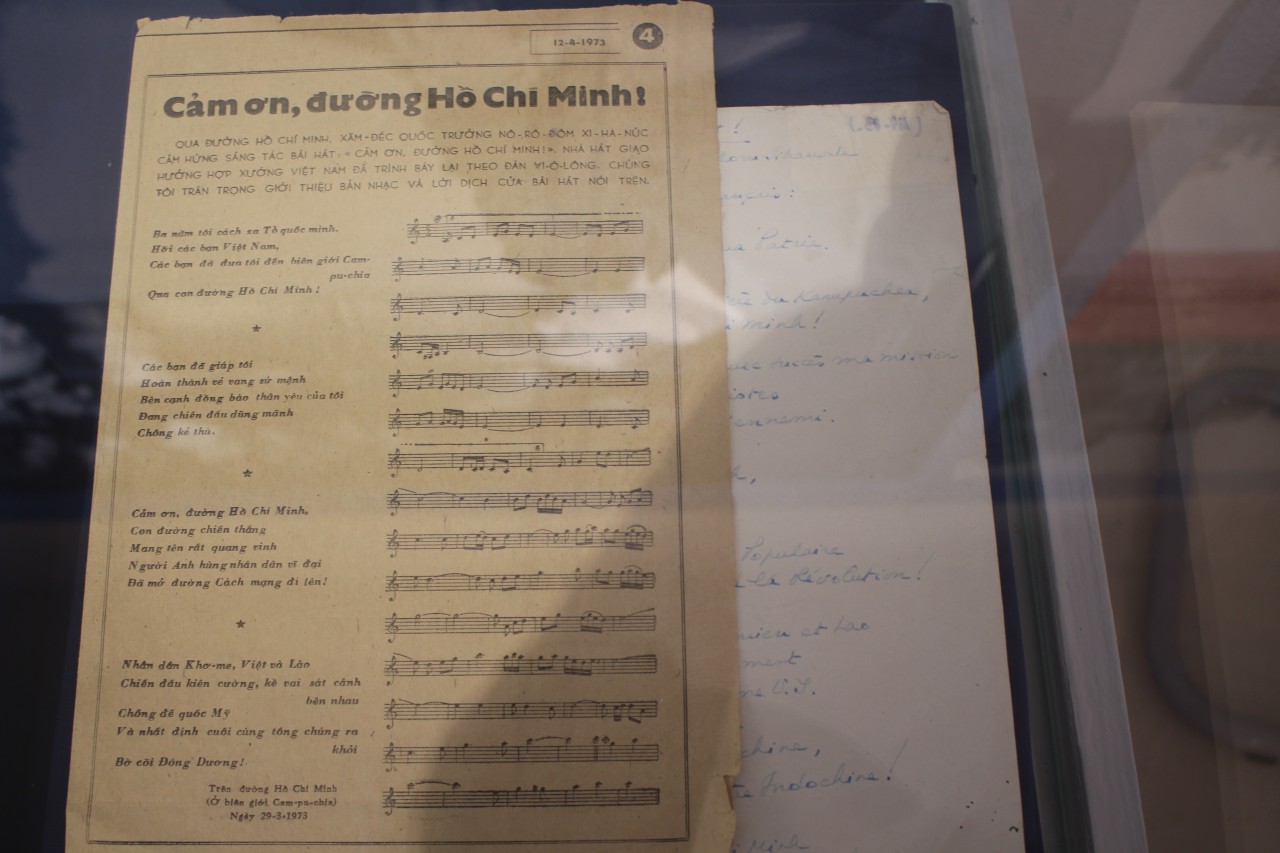 12-4-1973
4
Cảm ơn, đường Hồ Chí Minh!
QUA ĐƯỜNG HỒ CHÍ MINH, XĂM-ĐÉC QUỐC TRƯỞNG NÔ-RÔ-ĐÔM XI-HA-NÚC
CẢM HỨNG SÁNG TÁC BÀI HÁT: « CẢM ƠN, ĐƯỜNG HỒ CHÍ MINH!». NHÀ HÁT GIAO
HƯỞNG HỢP XƯỚNG VIỆT NAM ĐÃ TRÌNH BÀY LẠI THEO ĐÀN VI-Ô-LÔNG. CHÚNG
TÔI TRÂN TRỌNG GIỚI THIỆU BẢN NHẠC VÀ LỜI DỊCH CỦA BÀI HÁT NÓI TRÊN.
Ba năm tôi cách xa Tổ quốc mình.
Hỡi các bạn Việt Nam,
Các bạn đã đưa tôi đến biên giới Cam-
pu-chia
Qua con đường Hồ Chí Minh!
Các bạn đã giúp tôi
Hoàn thành vẻ vang sứ mệnh
Bên cạnh đồng bào thân yêu của tôi
Đang chiến đấu dũng mãnh
Chống kẻ thù.
Cảm ơn, đường Hồ Chí Minh,
Con đường chiến thắng
Mang tên rất quang vinh
Người Anh hùng nhân dân vĩ đại
Đã mở đường Cách mạng đi lên!
Nhân dân Khơ-me, Việt và Lào
Chiến đấu kiên cường, kề vai sát cánh
bên nhau
Chống đế quốc Mỹ
Và nhất định cuối cùng tống chúng ra
khỏi
Bờ cõi Đông Dương!
Trên đường Hồ Chí Minh
(Ở biên giới Cam-pu-chia)
Ngày 29-3-1973
Patrie.
du Kampuchea,
Minh!
succès ma mission
ennemi.
Populaire
la Révolution!
et Lao
U.S.
Indochine!
Minh